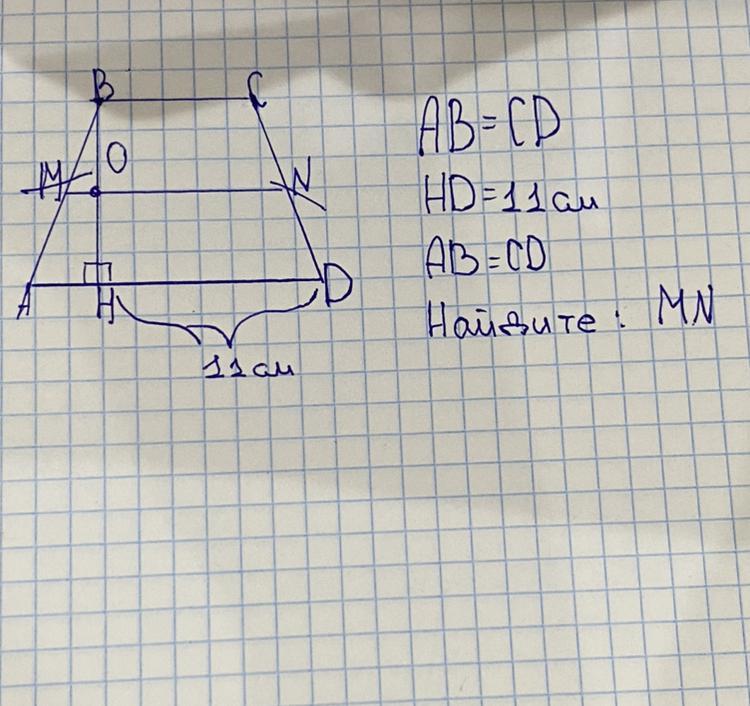 B C
M O N
A H D
11см
AB=CD
HD=11см
AB=CD
Найдите: MN